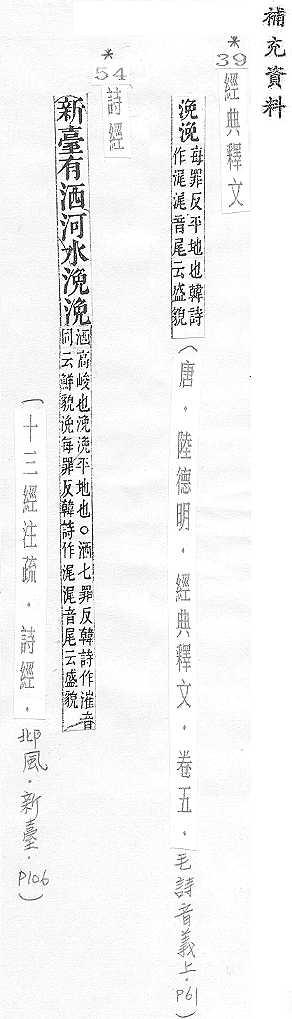 補充資料
*
39
經典釋文
浼浼每罪反平地也韓詩
作浘浘音尾云盛貌
(唐.陸德明.經典釋文.卷五.毛詩音義上.P61)
*
54
詩經
新臺有洒河水浼浼洒高峻也浼浼平地也○洒七罪反韓詩作漼音
同云鮮貌浼每罪反韓詩作浘浘音尾云盛貌
(十三經注疏.詩經.邶風.新臺.P106)